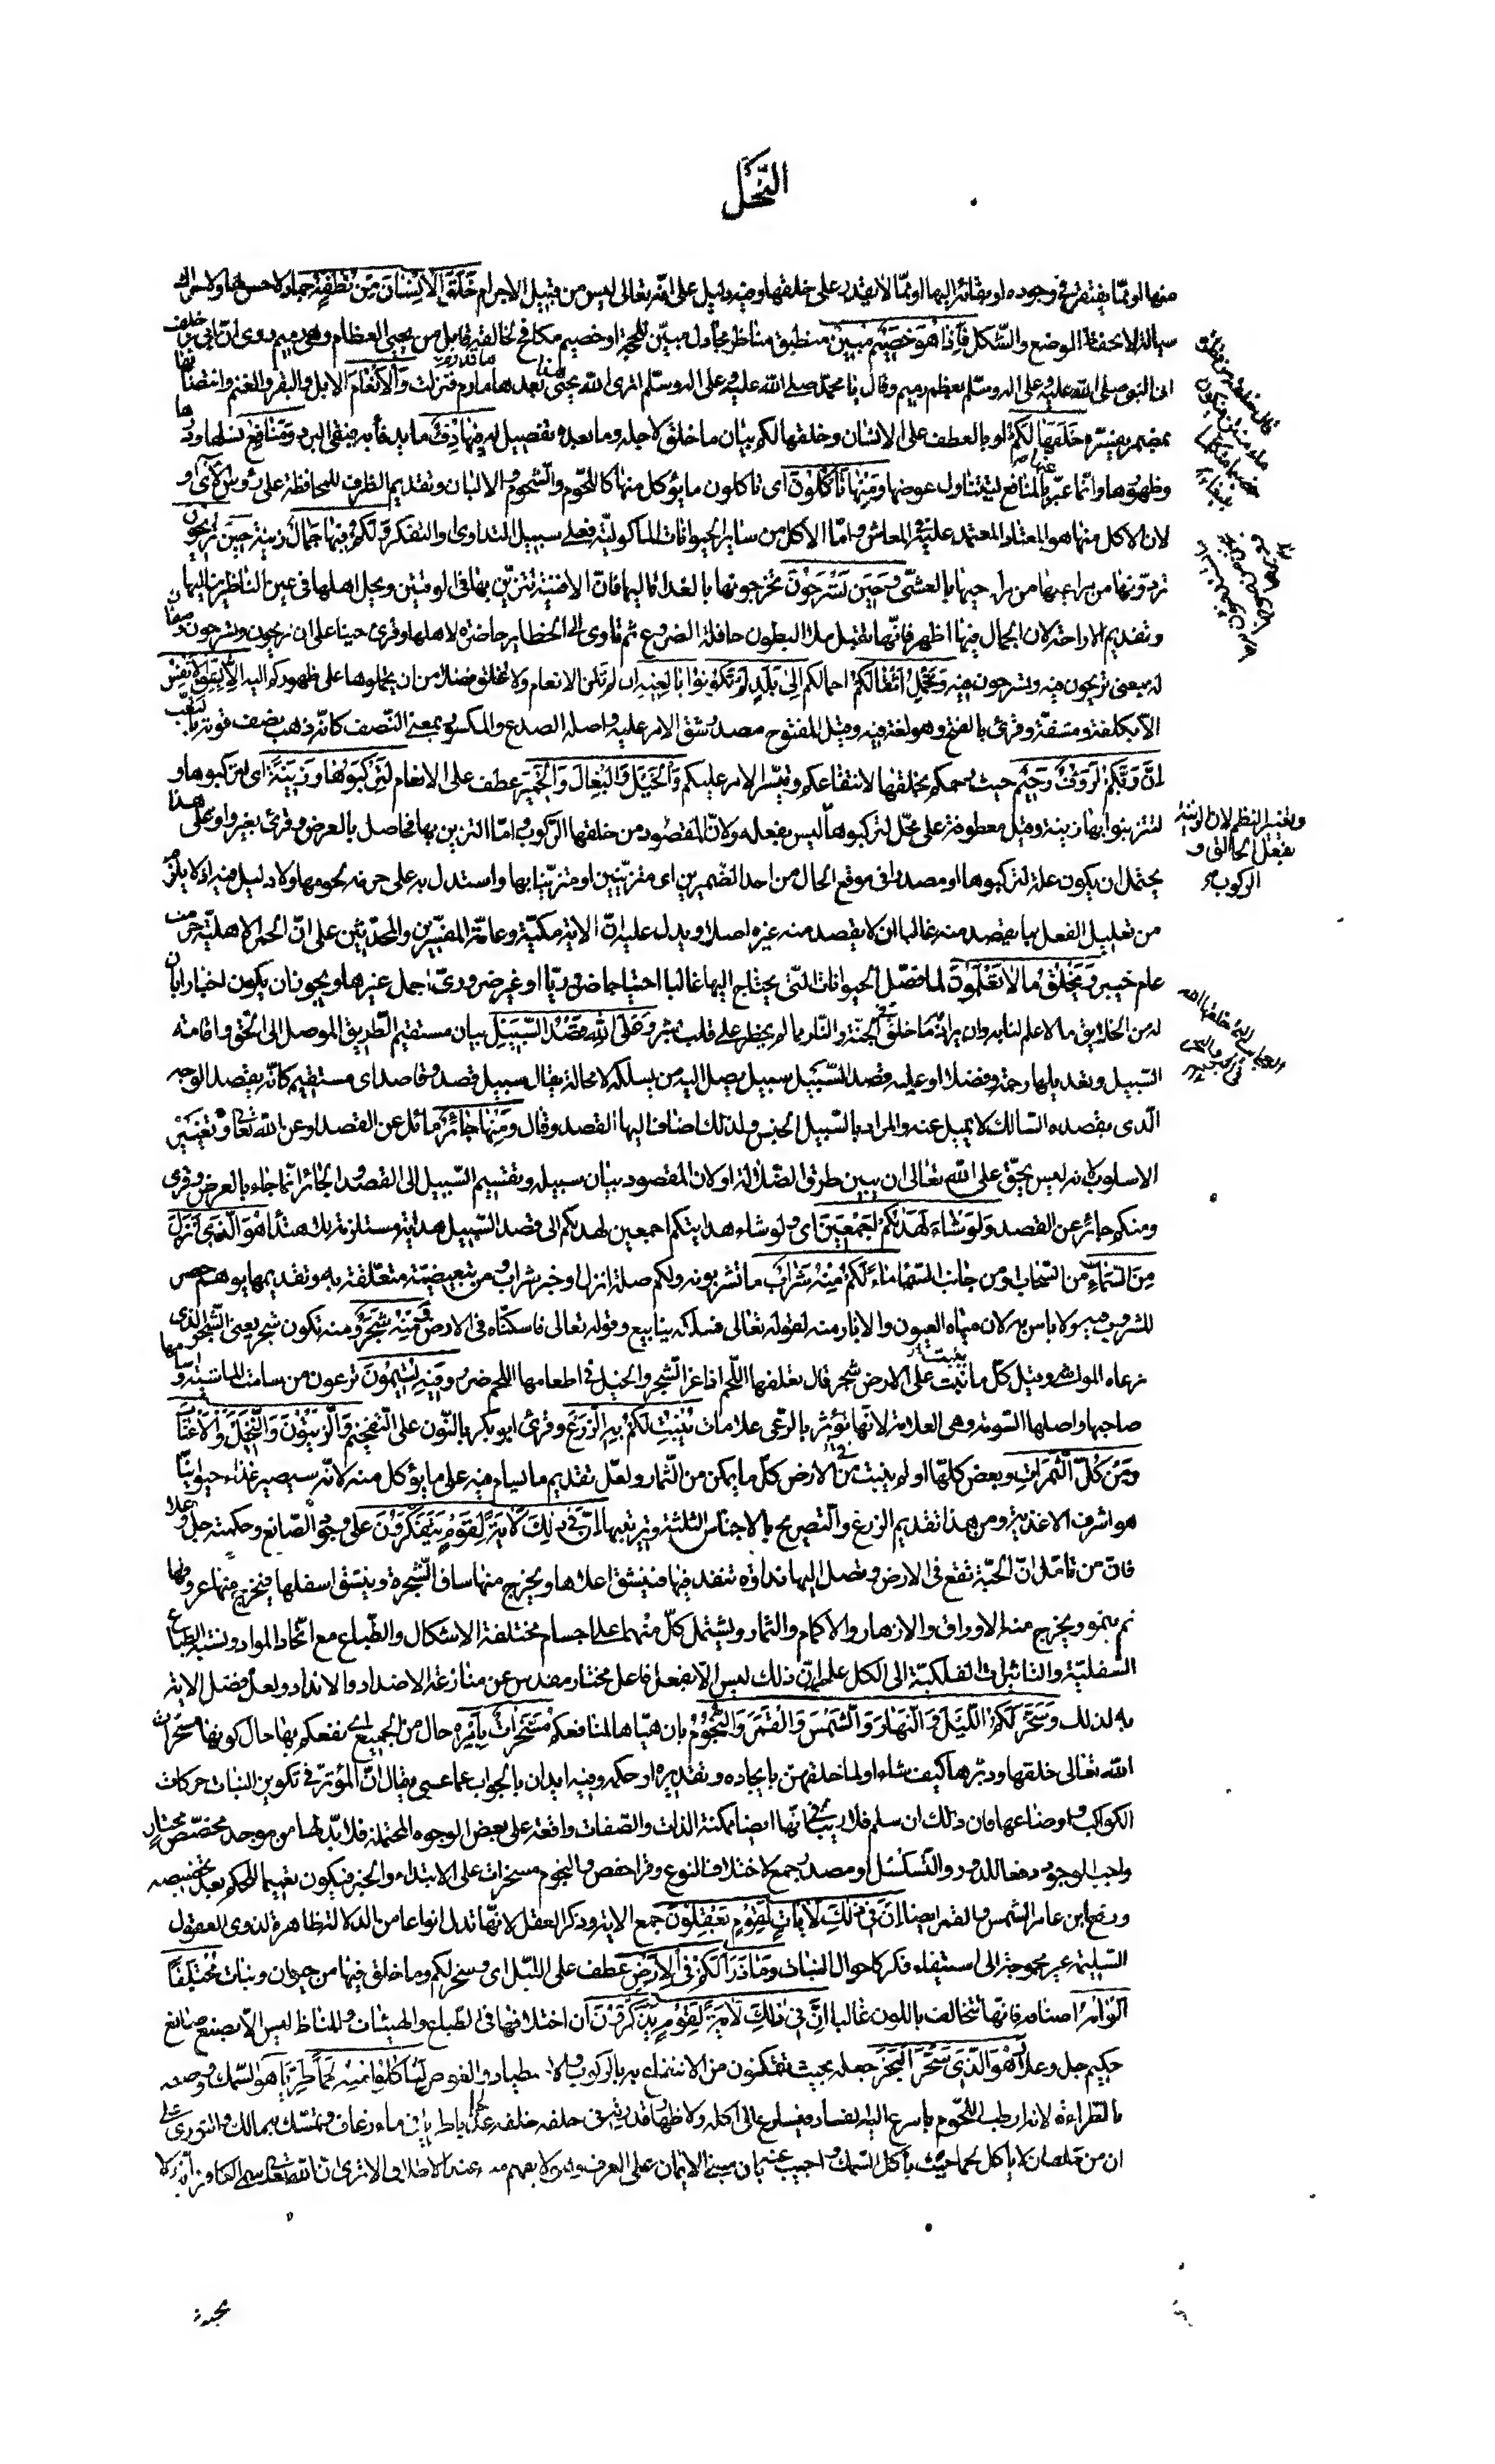 النَّحل
منها او ممّا يفتقر في وجوده او بقائه اليها او ممّا لا يقدر على خلقها وفيه دليل على انّه تعالى ليس من قبيل الاجرام خَلَقَ الْاِنْسَانَ مِنْ نُطْفَةٍ جماد لا حسّ لها ولا حراك
سيالة لا تحفظ الوضع والشكل فَاِذَا هُوَ خَصِيْمٌ مُبِيْنٌ منطيق مناظر مجادل مبيّن للحجة او خصيم مكافح لخالقه قايل من يحيى العظام وهى رميم روى انّ ابى بن خلف
اتى النبى صلى الله عليه وعلى اله وسلّم بعظم رميم وقال يا محمّد صلى الله عليه وعلى اله وسلّم اترى الله يحيى هذا بعد ما قد رم فنزلت وَالْاَنْعَامَ الابل والبقر والغنم وانتصابها
بمضمر يفسّره خَلَقَهَا لَكُمْ او بالعطف على الانسان وخلقها لكم بيان ما خلق لاجله وما بعده تفصيل له فِيْهَا دِفْءٌ ما يدفأ به فيقى البرد وَمَنَافِعُ نسلها ودرها
وظهورها وانّما عبّر عنها بالمنافع ليتناول عوضها وَمِنْهَا تَاْكُلُوْنَ اى تاكلون ما يؤكل منها كاللحوم والشحوم والالبان وتقديم الظرف للمحافظة على رؤس الآى او
لان الاكل منها هو المعتاد المعتمد عليه فى المعاش وامّا الاكل من ساير الحيوانات الماكولة فعلى سبيل التداوى والتفكه وَلَكُمْ فِيْهَا جَمَالٌ زينة حِيْنَ تُرِيْحُوْنَ
تردّونها من مراعيها الى مراحها بالعشىّ وَحِيْنَ تَسْرَحُوْنَ تخرجونها بالغداة اليها فانّ الافنية تتزيّن بها فى الوقتين ويجل اهلها فى عين الناظرين اليها
وتقديم الاراحة لان الجمال فيها اظهر فانّها تقبل ملاء البطون حافلة الضروع ثم تاوى الى الحظاير حاضرة لاهلها وقرئ حينا على ان تريحون وتسرحون وصفان
له بمعنى تريحون فيه وتسرحون فيه وَتَحْمِلُ اَثْقَالَكُمْ احمالكم اِلَى بَلَدٍ لَمْ تَكُوْنُوْا بَالِغِيْهِ ان لم تكن الانعام ولم تخلق فضلا من ان تحملوها على ظهوركم اليه اِلَّا بِشِقِّ الْاَنْفُسِ
الا بكلفة ومشقّة وقرئ بالفتح وهو لغة فيه وقيل المفتوح مصدر شق الامر عليه واصله الصدع والمكسور بمعنى النّصف كانّه ذهب نصف قوته بالتعب
اِنَّ رَبَّكُمْ لَرَؤُفٌ رَحِيْمٌ حيث رحمكم بخلقها لانتفاعكم وتيسّر الامر عليكم وَالْخَيْلَ وَالْبِغَالَ وَالْحَمِيْرَ عطف على الانعام لِتَرْكَبُوْهَا وَزِيْنَةً اى لتركبوها و
لتتزينوا بها زينة وقيل معطوفة على محلّ لتركبوها ليس بفعله ولانّ المقصود من خلقها الرّكوب وامّا التزين بها فحاصل بالعرض وقرئ بغير واو وعلى هذا
يحتمل ان يكون علة لتركبوها او مصدرا فى موقع الحال من احد الضميرين اى متزيّنين او متزيّنا بها واستدل به على حرمة لحومها ولا دليل فيه اذ لا يلزم
من تعليل الفعل بما يقصد منه غالبا ان لا يقصد منه غيره اصلا ويدل عليه انّ الاية مكيّة وعامّة المفسّرين والمحدّثين على انّ الحمر الاهلية حرمت
عام خيبر وَيَخْلُقُ مَا لَا تَعْلَمُوْنَ لما فصّل الحيوانات التى يحتاج اليها غالبا احتياجا ضروريّا او غير ضرورىّ اجمل غيرها ويجوز ان يكون اخبارا بان
له من الخلايق ما لا علم لنا به وان يراد به ما خلق فى الجنّة والنّار بما لم يخطر على قلب بشر وَعَلَى اللهِ قَصْدُ السَّبِيْلِ بيان مستقيم الطّريق الموصل الى الحقّ واقامة
السّبيل وتعديلها رحمة وفضلا او عليه قصد السّبيل يصل اليه من يسلكه لا محالة يقال سبيل قصد وقاصد اى مستقيم كانّه يقصد الوجه
الّذى يقصده السّالك لا يميل عنه والمراد بالسّبيل الجنس ولذلك اضاف اليها القصد وقال وَمِنْهَا جَائِرٌ مائل عن القصد او عن الله تعالى وتغيير
الاسلوب لانه ليس بحقّ على الله تعالى ان يبين طرق الضّلالة او لان المقصود بيان سبيله وتقسيم السّبيل الى القصد والجائر انّما جاء بالعرض وقرئ
ومنكم جائر عن القصد وَلَوْ شَاءَ لَهَدٰىكُمْ اَجْمَعِيْنَ اى ولو شاء هدايتكم اجمعين لهديكم الى قصد السّبيل هداية مستلزمة للاهتداء هُوَ الَّذِىْ اَنْزَلَ
مِنَ السَّمَاءِ من السّحاب او من جانب السّماء مَاءً لَكُمْ مِنْهُ شَرَابٌ ما تشربونه ولكم صلة انزل او خبر شراب ومن تبعيضيّة متعلّقة به وتقديمها يوهم حصر
المشروب فيه ولا باس به لان مياه العيون والابار منه لقوله تعالى فسلكه ينابيع وقوله تعالى فاسكنّاه فى الارض وَمِنْهُ شَجَرٌ ومنه تكون شجر يعنى الشّجر الذى
ترعاه المواشى وقيل كلّ ما نبت على الارض شجر قال نعلفها اللّحم اذا عزّ الشّجر والخيل فى اطعامها اللحم ضرر وَفِيْهِ تُسِيْمُوْنَ ترعون من سامت الماشية واسامها
صاحبها واصلها السّومة وهى العلامة لانّها تؤثر بالرّعى علامات يُنْبِتُ لَكُمْ بِهِ الزَّرْعَ وقرئ ابو بكر بالنّون على التّفخيم وَالزَّيْتُوْنَ وَالنَّخِيْلَ وَالْاَعْنَابَ
وَمِنْ كُلِّ الثَّمَرَاتِ وبعض كلّها اذ لم ينبت فى الارض كلّ ما يمكن من الثّمار ولعلّ تقديم ما يسام فيه على ما يؤكل منه لانّه سيصير غذاء حيوانيّا
هو اشرف الاغذية ومن هذا تقديم الزرع والتصريح بالاجناس الثلثة وترتيبها اِنَّ فِى ذٰلِكَ لَاٰيَةً لِقَوْمٍ يَتَفَكَّرُوْنَ على وجود الصّانع وحكمته جلّ وعلا
فانّ من تامّل انّ الحبّة تقع فى الارض وتصل اليها نداوة تنفذ فيها فينشق اعلاها ويخرج منها ساق الشّجرة وينشق اسفلها فيخرج منها عروقها
ثم ينمو ويخرج منه الاوراق والازهار والاكمام والثمار ويشتمل كلّ منها على اجسام مختلفة الاشكال والطّبايع مع اتّحاد المواد ونسبة الطّبايع
السّفليّة والتاثيرات الفلكيّة الى الكل علم انّ ذلك ليس الّا بفعل فاعل مختار مقدس عن منازعة الاضداد والانداد ولعل فصل الاية
به لذلك وَسَخَّرَ لَكُمُ اللَّيْلَ وَالنَّهَارَ وَالشَّمْسَ وَالْقَمَرَ وَالنُّجُوْمَ بان هيّاها لمنافعكم مُسَخَّرَاتٌ بِاَمْرِهِ حال من الجميع اى نفعكم بها حال كونها مسخرات
الله تعالى خلقها ودبّرها كيف شاء او لما خلقهنّ بايجاده وتقديره او حكمه وفيه ايذان بالجواب عما عسى يقال انّ المؤثر فى تكوين النبات حركات
الكواكب واوضاعها فان ذلك ان سلم فلا ريب فى انّها ايضا ممكنة الذات والصّفات واقعة على بعض الوجوه المحتملة فلا بدّ لها من موجد مخصّص مختار
واجب الوجود دفعا للدور والتّسلسل او مصدر جمع لاختلاف النوع وقرا حفص والنجوم مسخرات على الابتداء والخبر فيكون تعميما للحكم بعد تخصيصه
ورفع ابن عامر الشمس والقمر ايضا اِنَّ فِى ذٰلِكَ لَاٰيَاتٍ لِقَوْمٍ يَعْقِلُوْنَ جمع الاية وذكر العقل لانّها تدل انواعا من الدلالة ظاهرة لذوى العقول
السّليمة غير محوجة الى استيفاء فكر كاحوال النبات وَمَا ذَرَاَ لَكُمْ فِى الْاَرْضِ عطف على اللّيل اى وسخر لكم وما خلق فيها من حيوان ونبات مُخْتَلِفًا
اَلْوَانُهُ اصنافه فانّها تتخالف باللون غالبا اِنَّ فِى ذٰلِكَ لَاٰيَةً لِقَوْمٍ يَذَّكَّرُوْنَ ان اختلافها فى الطّباع والهيئات والمناظر ليس الّا بصنع صانع
حكيم جل وعلا وَهُوَ الَّذِىْ سَخَّرَ الْبَحْرَ جعله بحيث تتمكنون من الانتفاع به بالركوب والاصطياد والغوص لِتَاْكُلُوْا مِنْهُ لَحْمًا طَرِيًّا هو السّمك ووصفه
بالطّراوة لانه ارطب اللّحوم يسرع اليه الفساد فيسارع الى اكله ولاظهار قدرته فى خلقه عذبا طريا فى ماء زعاف وتمسّك به مالك والثورى على
ان من حلف ان لا ياكل لحما حنث باكل السّمك واجيب عنه بان مبنى الايمان على العرف وهو لا يفهم منه عند الاطلاق الا ترى ان الله تعالى سمى الكافر دابّة ولا
وتغيير النظم لان الزينة
بفعل الخالق و
الركوب